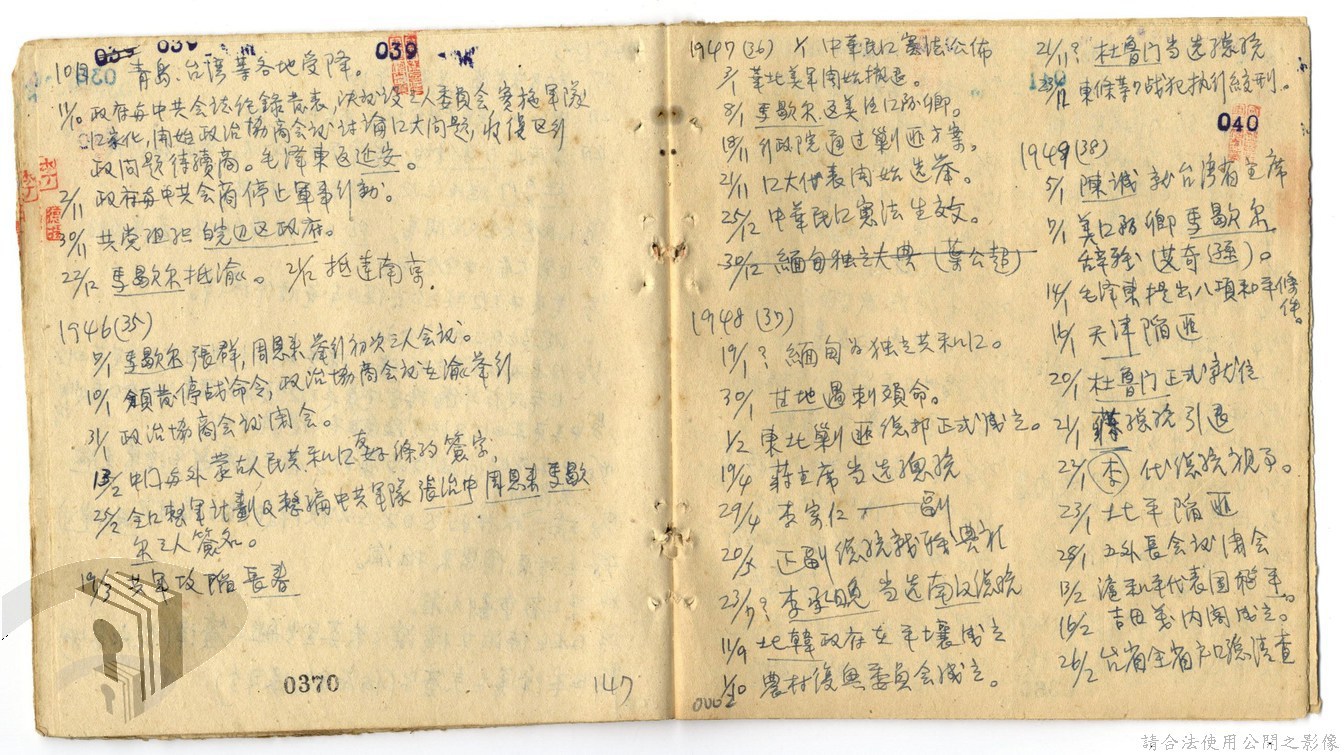 039
039
10月 青島、台湾等各地受降。
11/10 政府与中共会谈纪錄发表,决议设三人委員会实施軍隊
囗家化,開始政治協商会议讨論囗大问題,收復区行
政问題待續商。毛泽東返延安。
2/11 政府与中共会商停止軍事行动。
30/11 共党组织皖辺区政府。
22/12 馬歇尔抵渝。 2/12 抵達南京.
1946(35)
7/1 馬歇尔張群,周恩来举行初次三人会议。
10/1 頒发停战命令,政治協商会议在渝举行
31/1 政治協商会议闭会。
13/2 中囗与外蒙古人民共和囗友好條约簽字,
25/2 全囗整軍计劃及整编中共軍隊張治中周恩来馬歇
尔三人簽名。
19/3 共軍攻陷長春
0370
147
1947(36) 1/1 中華民囗憲法公佈
3/1 華北美軍開始撤退。
8/1 馬歇尔返美任囗务卿。
18/11 行政院通过剿匪方案。
21/11 囗大代表開始选举。
25/12 中華民囗憲法生效。
30/12 緬甸独立大典(葉公超)
1948(37)
19/1? 緬甸为独立共和囗。
30/1 甘地遇刺殞命。
1/2 東北剿匪总部正式成立。
19/4 蔣主席当选總统
29/4 李宗仁 副
20/5 正副總统就职典礼
23/7? 李承晚当选南汉總统
11/9 北韓政府在平壤成立
1/10 農村復興委員会成立。
21/11? 杜魯门当选總统
23/12 東條等7战犯执行絞刑.
040
1949(38)
5/1 陳诚就台湾省主席
7/1 美囗务卿馬歇尔
辞职(艾奇遜)。
14/1 毛泽東提出八項和平條
件。
15/1 天津陷匪
20/1 杜魯门正式就位
21/1 蔣總统引退
22/1 李代總统视事。
23/1 北平陷匪
28/1 五外長会议闭会
13/2 滬和平代表團飛平。
16/2 吉田茂内阁成立。
26/2 台省全省户口總清查
請合法使用公開之影像